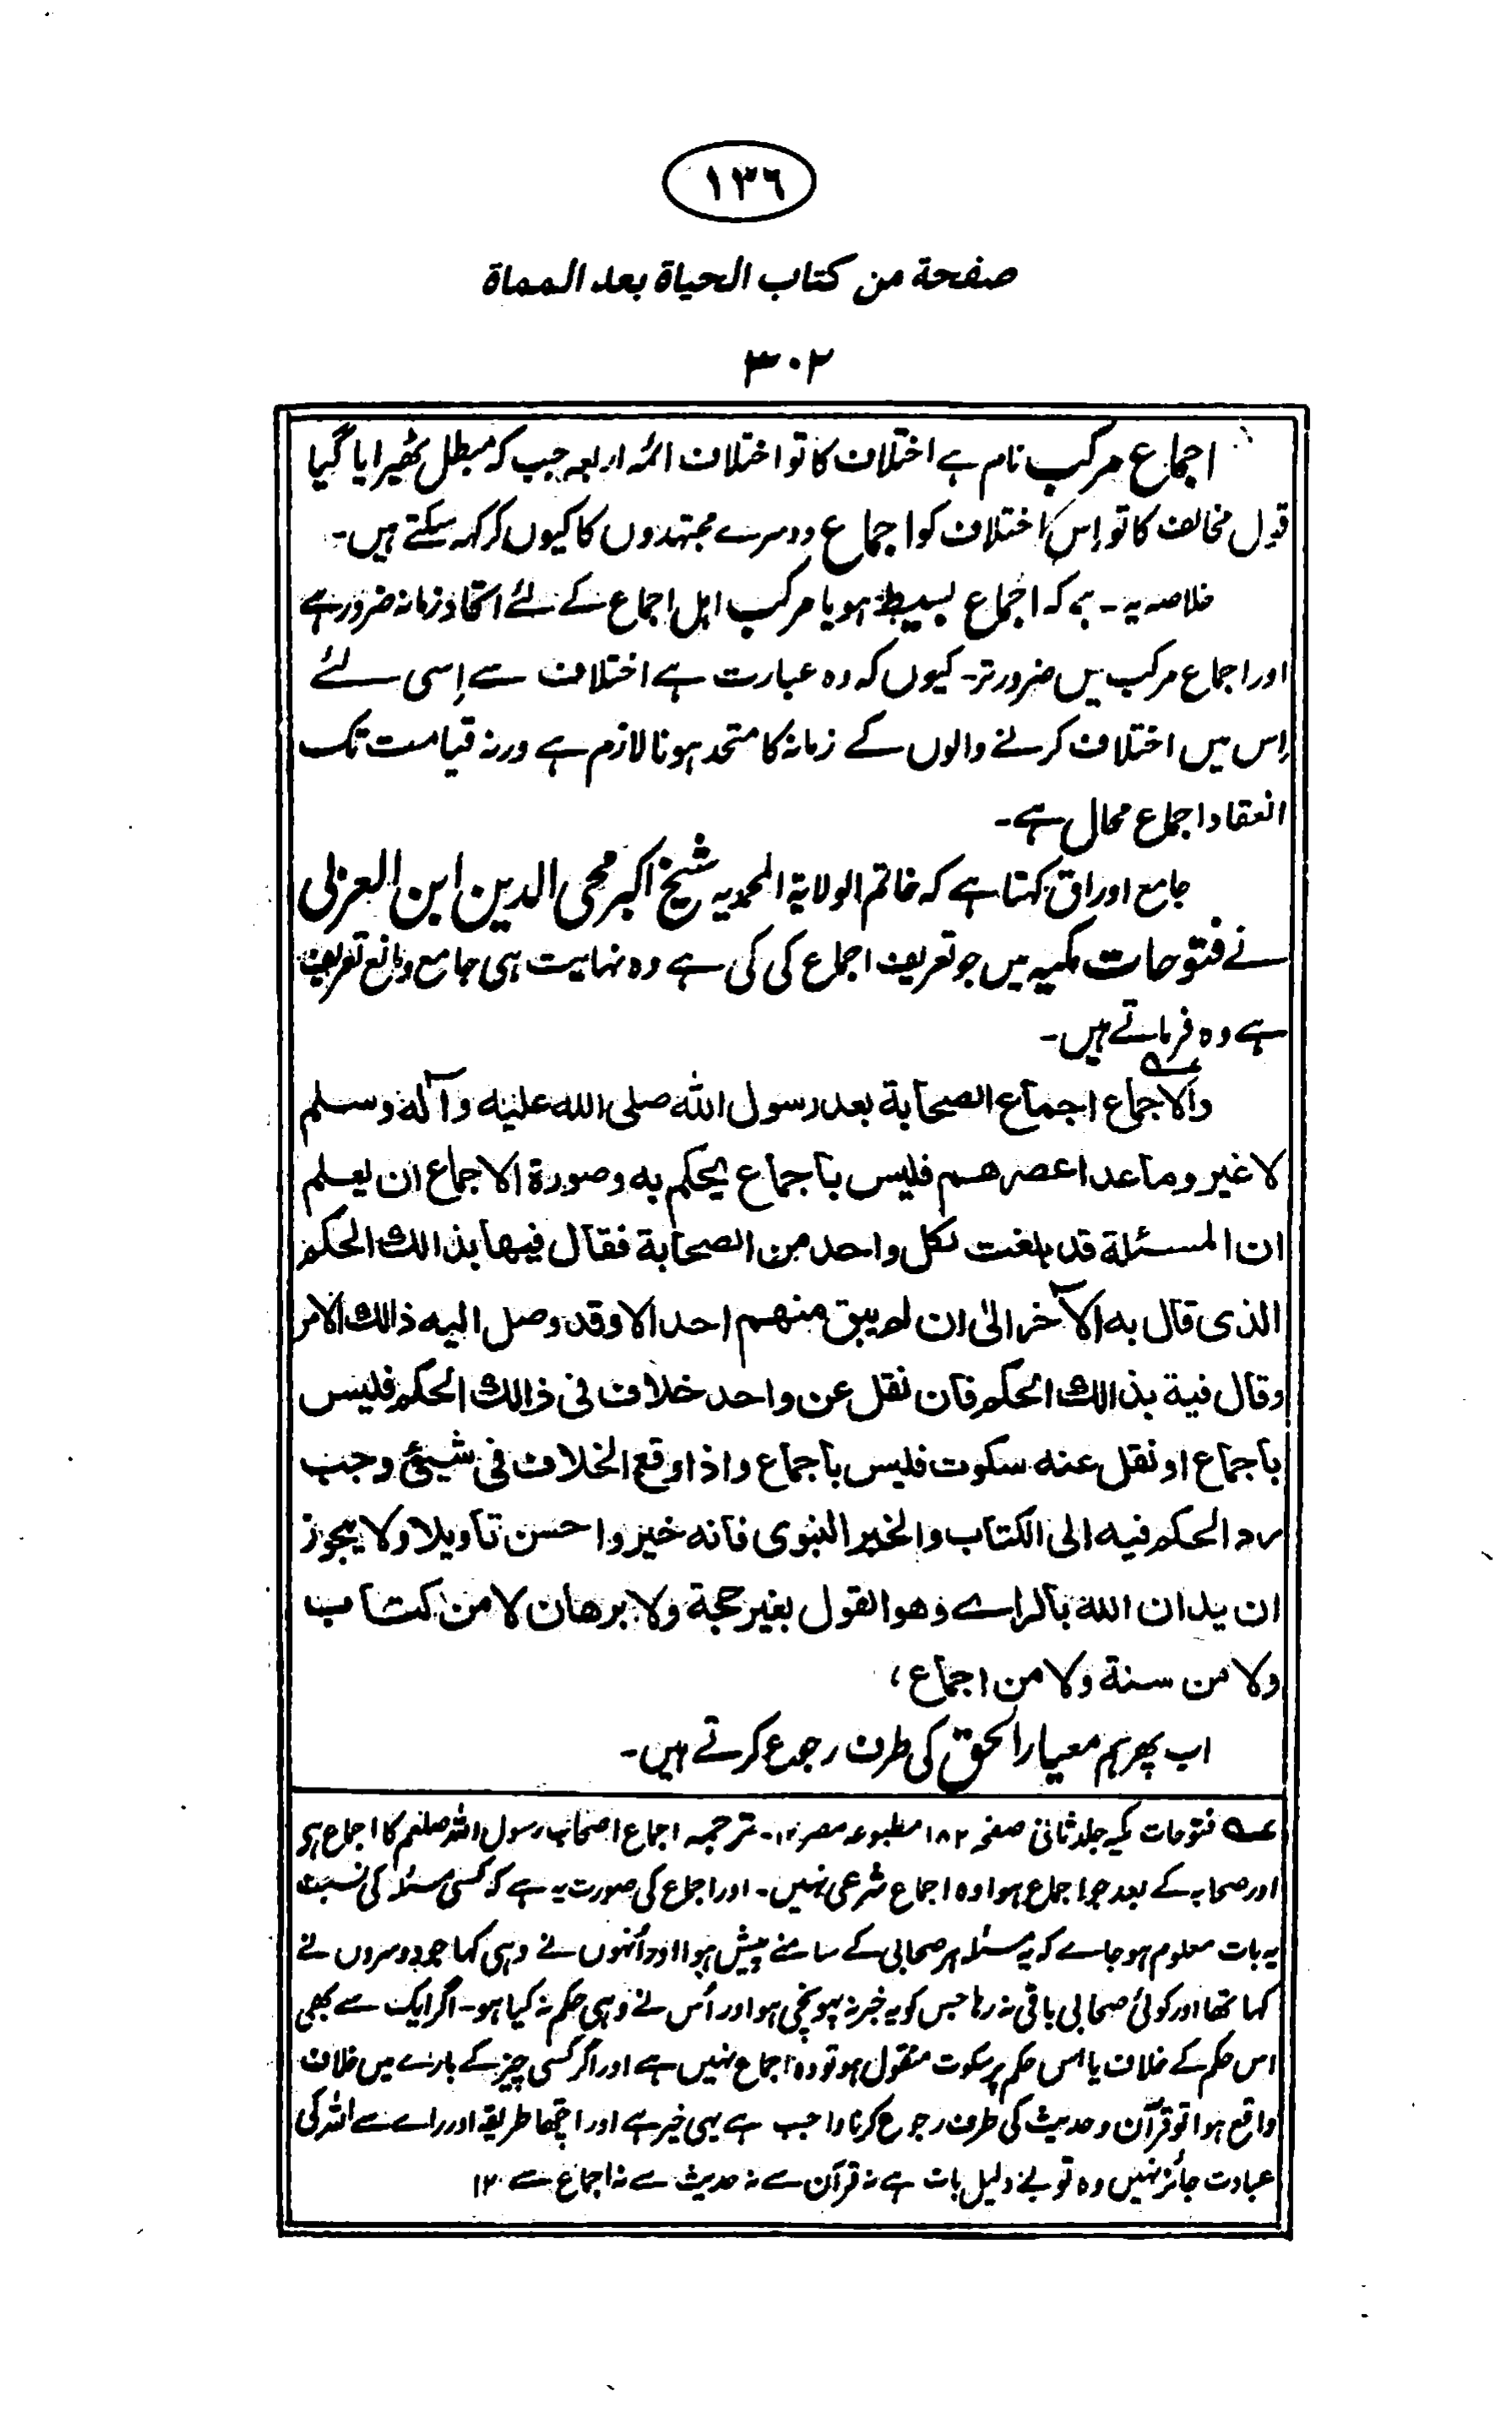 ١٣٦
صفحة من كتاب الحياة بعد المماة
٣٠٢
اجماع مرکب نام ہے اختلاف کا تو اختلاف ائمہ اربعہ جب کہ مبطل ٹھیرایا گیا
قول مخالف کا تو اِس اختلاف کو اجماع دوسرے مجتہدوں کا کیوں کر کہہ سکتے ہیں۔
خلاصہ یہ۔ ہے کہ اجماع بسیط ہو یا مرکب اہل اجماع کے لئے اتحاد زمانہ ضرور ہے
اور اجماع مرکب میں ضرور تر۔ کیوں کہ وہ عبارت ہے اختلاف سے اِسی لئے
اِس میں اختلاف کرنے والوں کے زمانہ کا متحد ہونا لازم ہے ورنہ قیامت تک
انعقاد اجماع محال ہے۔
جامع اوراق کہتا ہے کہ خاتم الولایۃ المحمدیہ شیخ اکبر محی الدین ابن العربی
نے فتوحات مکیہ میں جو تعریف اجماع کی کی ہے وہ نہایت ہی جامع و مانع تعریف
ہے وہ فرماتے ہیں۔
والاجماع اجماع الصحابة بعد رسول الله صلى الله عليه وآله وسلم
لا غير وما عدا عصرهم فليس باجماع يحكم به وصورة الاجماع ان يعلم
ان المسئلة قد بلغت لكل واحد من الصحابة فقال فيها بذالك الحكم
الذى قال به الآخر الىٰ ان لم يبق منهم احد الا وقد وصل اليه ذالك الامر
وقال فية بذالك الحكم فان نقل عن واحد خلاف فى ذالك الحكم فليس
باجماع او نقل عنه سكوت فليس باجماع واذا وقع الخلاف فى شيئ وجب
رد الحكم فيه الى الكتاب والخبر النبوى فانه خير واحسن تأويلا ولا يجوز
ان يدان الله بالراے وهو القول بغير حجة ولا برهان لا من كتاب
ولا من سنة ولا من اجماع،
اب پھر ہم معیار الحق کی طرف رجوع کرتے ہیں۔
عہ فتوحات مکیہ جلد ثانی صفحہ ۱۸۲ مطبوعہ مصر ۱۲۔ ترجمہ اجماع اصحاب رسول اللہ صلعم کا اجماع ہی
اور صحابہ کے بعد جو اجماع ہوا وہ اجماع شرعی نہیں۔ اور اجماع کی صورت یہ ہے کہ کسی مسئلہ کی نسبت
یہ بات معلوم ہو جاے کہ یہ مسئلہ ہر صحابی کے سامنے پیش ہوا اور اُنہوں نے وہی کہا جو دوسروں نے
کہا تھا اور کوئی صحابی باقی نہ رہا جس کو یہ خبر نہ پہونچی ہو اور اُس نے وہی حکم نہ کیا ہو۔ اگر ایک سے بھی
اس حکم کے خلاف یا اس حکم پر سکوت منقول ہو تو وہ اجماع نہیں ہے اور اگر کسی چیز کے بارے میں خلاف
واقع ہوا تو قرآن و حدیث کی طرف رجوع کرنا واجب ہے یہی خیر ہے اور اچھا طریقہ اور راے سے اللہ کی
عبادت جائز نہیں وہ تو بے دلیل بات ہے نہ قرآن سے نہ حدیث سے نہ اجماع سے ۱۲